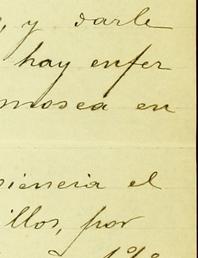 , y darle
hay enfer
mosea en
iencia el
illos, por